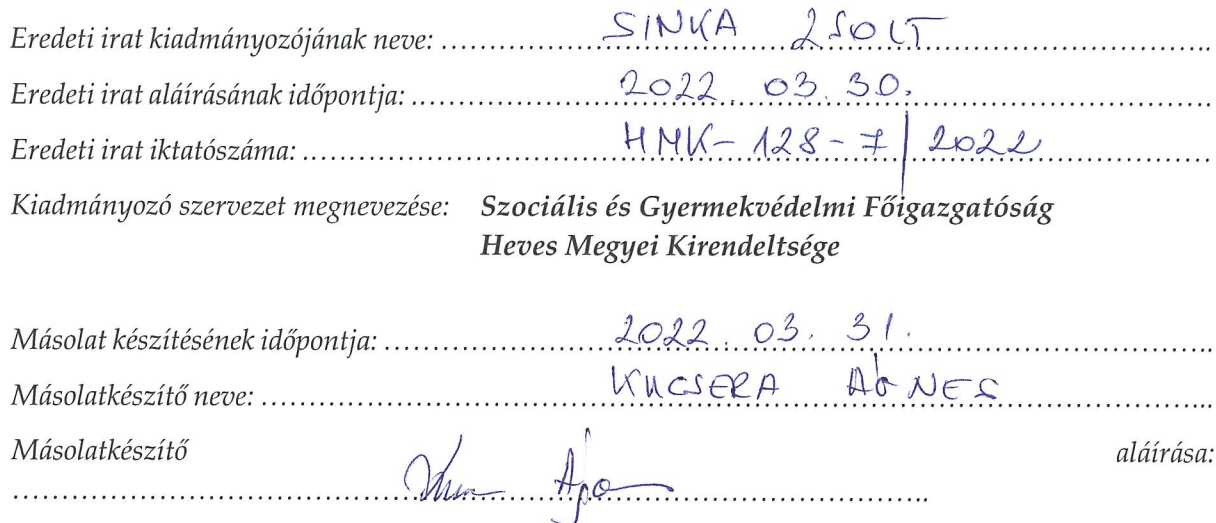 Eredeti irat kiadmányozójának neve: SINKA ZSOLT
Eredeti irat aláírásának időpontja: 2022. 03. 30.
Eredeti irat iktatószáma: HMK-128-7/2022
Kiadmányozó szervezet megnevezése: Szociális és Gyermekvédelmi Főigazgatóság
Heves Megyei Kirendeltsége
Másolat készítésének időpontja: 2022. 03. 31.
Másolatkészítő neve: KUCSERA ÁGNES
Másolatkészítő aláírása: